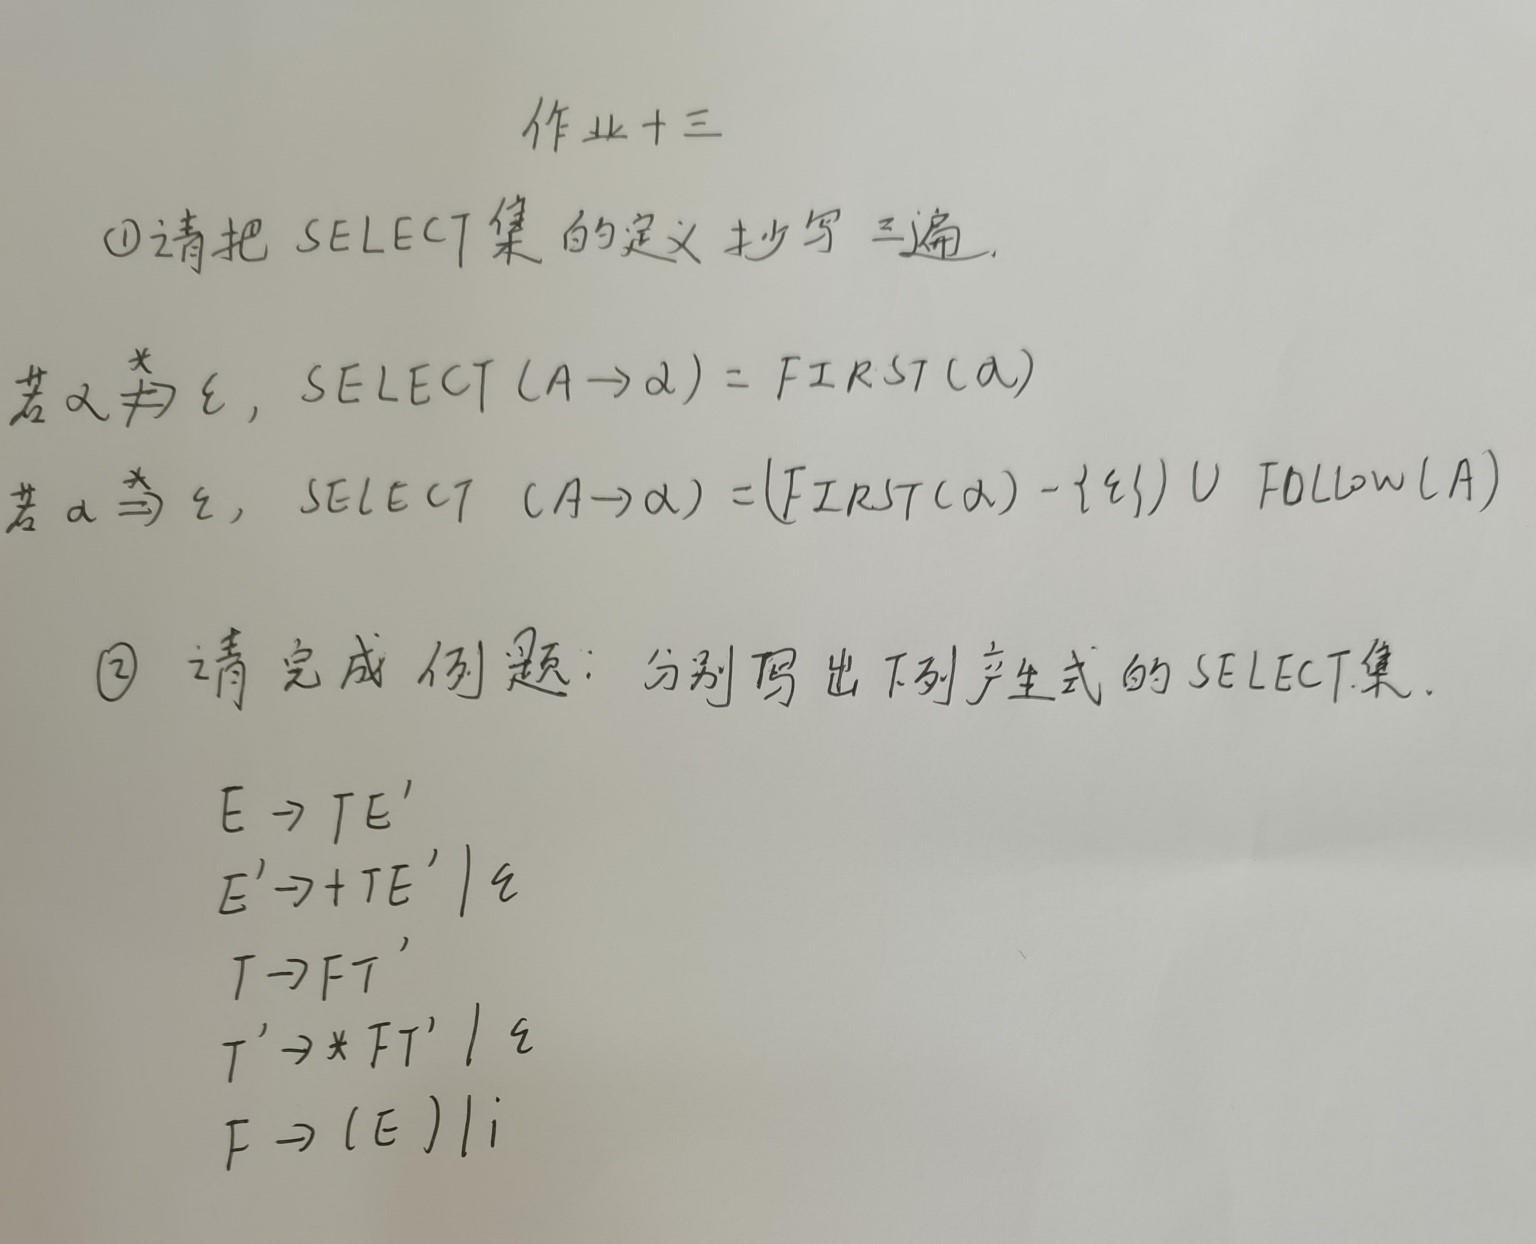 作业十三
①请把 SELECT集 的定义抄写三遍.
若α*⇏ε, SELECT(A→α) = FIRST(α)
若α*⇒ε, SELECT (A→α) = (FIRST(α) - {ε}) ∪ FOLLOW(A)
② 请完成例题: 分别写出下列产生式的SELECT集.
E → TE'
E' → +TE' | ε
T → FT'
T' → *FT' | ε
F → (E) | i